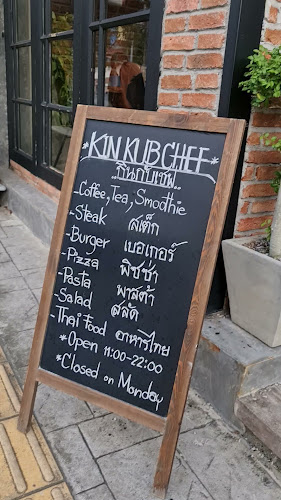 *KIN KUB CHEF*
..กินกับเชฟ..
-Coffee, Tea, Smoothie
-Steak สเต็ก
-Burger เบอเกอร์
-Pizza พิซซ่า
-Pasta พาสต้า
-Salad สลัด
-Thai Food อาหารไทย
*Open 11:00-22:00
*Closed on Monday